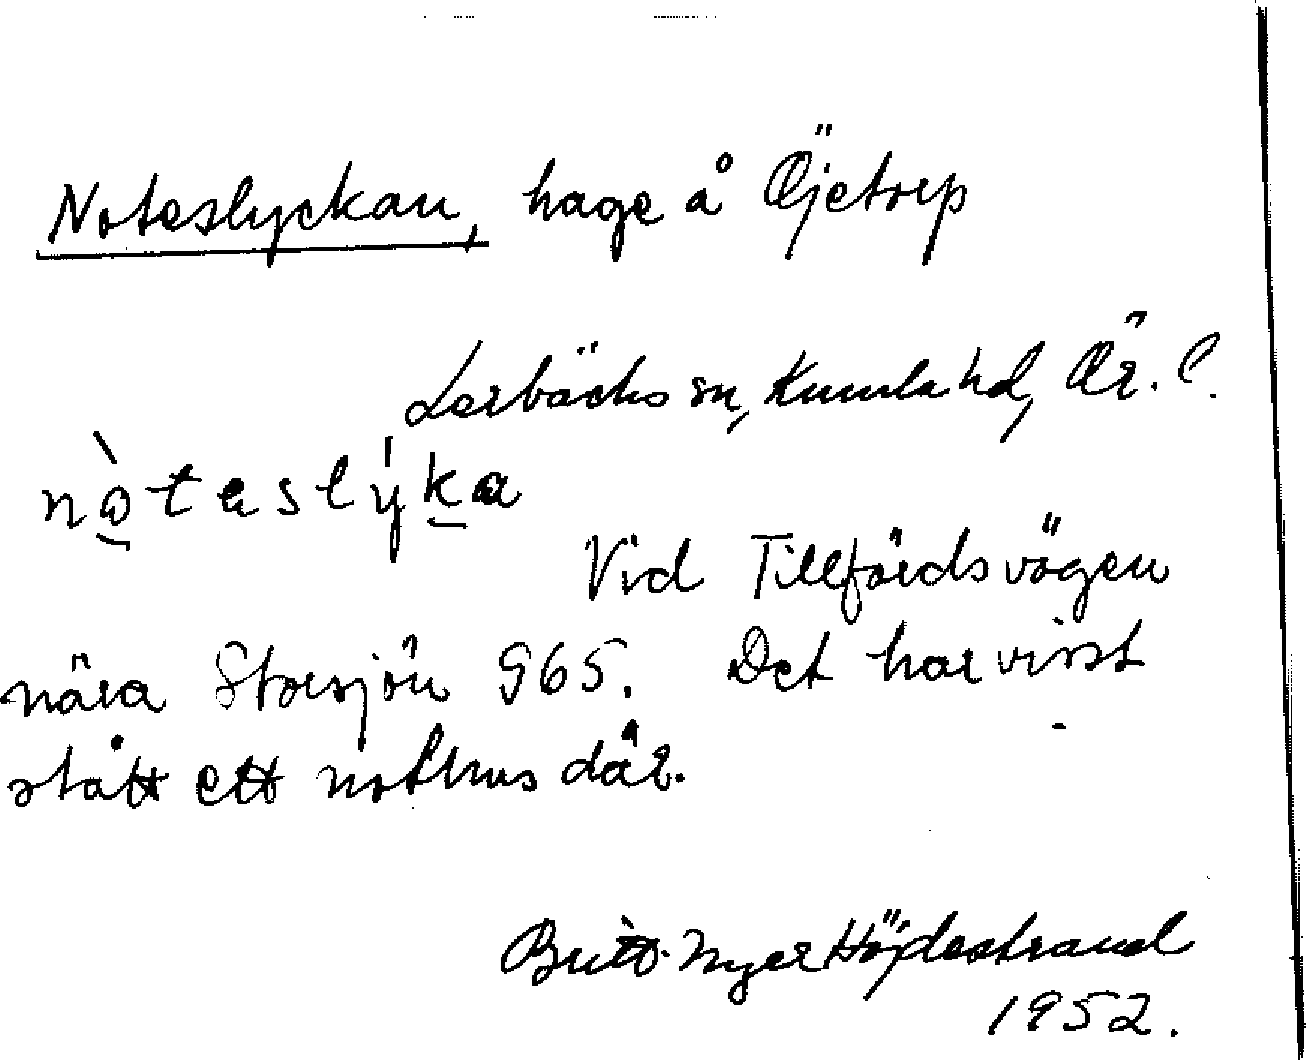 Noteslyckan, hage å Öjetorp
Lerbäcks sn, Kumla hd, Ör. l.
nòteslýka
Vid Tillfärdsvägen
nära Storsjön 965. Det har visst
stått ett nothus där.
Britt Höjdestrand
1952.